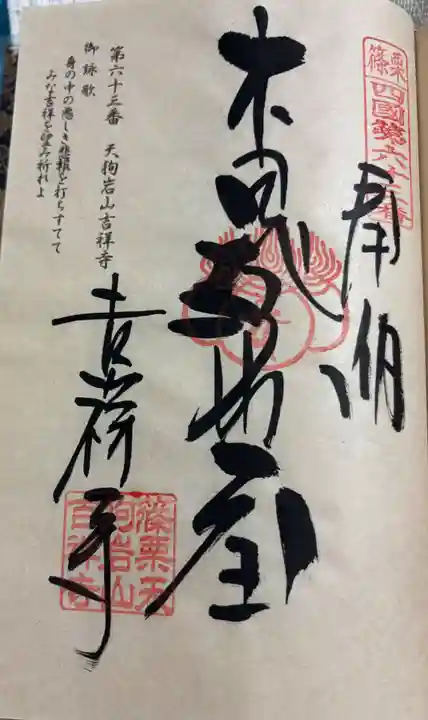 篠栗
四國第六十三番
奉納
本尊毘沙門天
吉祥寺
第六十三番 天狗岩山吉祥寺
御詠歌
身の中の悪しき悲報を打ちすてて
みな吉祥を望み祈れよ
篠栗天
狗岩山
吉祥寺